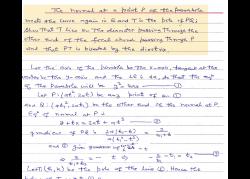 The normal at a point P of the parabola
meets the curve again in Q and T is the pole of PQ;
Show that T lies on the diameter passing through the
other end of the focal chord passing through P
and that PT is bisected by the directrix.
Let the axis of the parabola be the x-axis, tangent at the
vertex be the y-axis and the LR is 4a, so that the eqⁿ
of the Parabola will be y² = 4ax — ①
Let P : (at², 2at) be any point of on ①
and Q : (at₁², 2at₁) be the other end of the normal at P.
Eqⁿ of normal at P is
y + tx = 2at + at³ — ②
gradient of PQ is
and ② gives gradient -t
∴ = -t ⇒ - t = t₁ — ③
Let T(h, k) be the pole of the line ②. Hence the